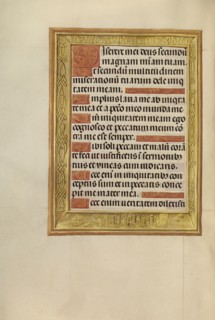 Miserere mei deus secundum
magnam miam tuam.
Et secundum multitudinem
miserationum tuarum dele iniq
tatem meam.
Amplius laua me ab iniqui
tate mea et a peccō meo munda me
Quoniam iniquitatem meam ego
cognosco et peccatum meum cō
tra me est semper.
Tibi soli peccaui et malū corā
te feci ut iustificeris ī sermonibȝ
tuis et vincas cum iudicaris.
Ecce enī in iniquitatibȝ con
ceptus sum et in peccatis conce
pit me mater mea.
Ecce enim veritatem dilexisti